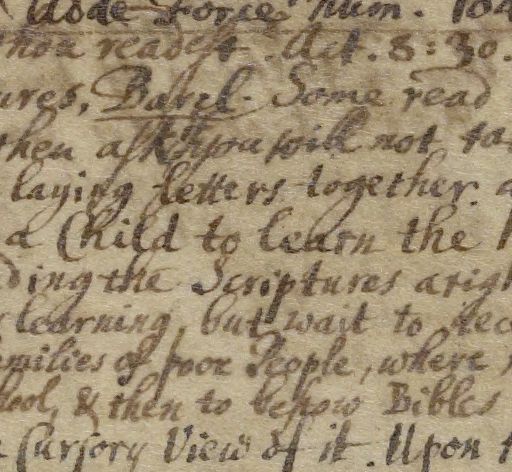 Force Num. 10
thou readest. Act. 8:30.
ures, Baxl. Some read
then ask you will not ta
laying letters together. a
a Child to learn the
ding the Scriptures arig
learning, but wait to
amilies of poor People, where
hool, & then to bestow Bibles
Cursory View of it. Upon